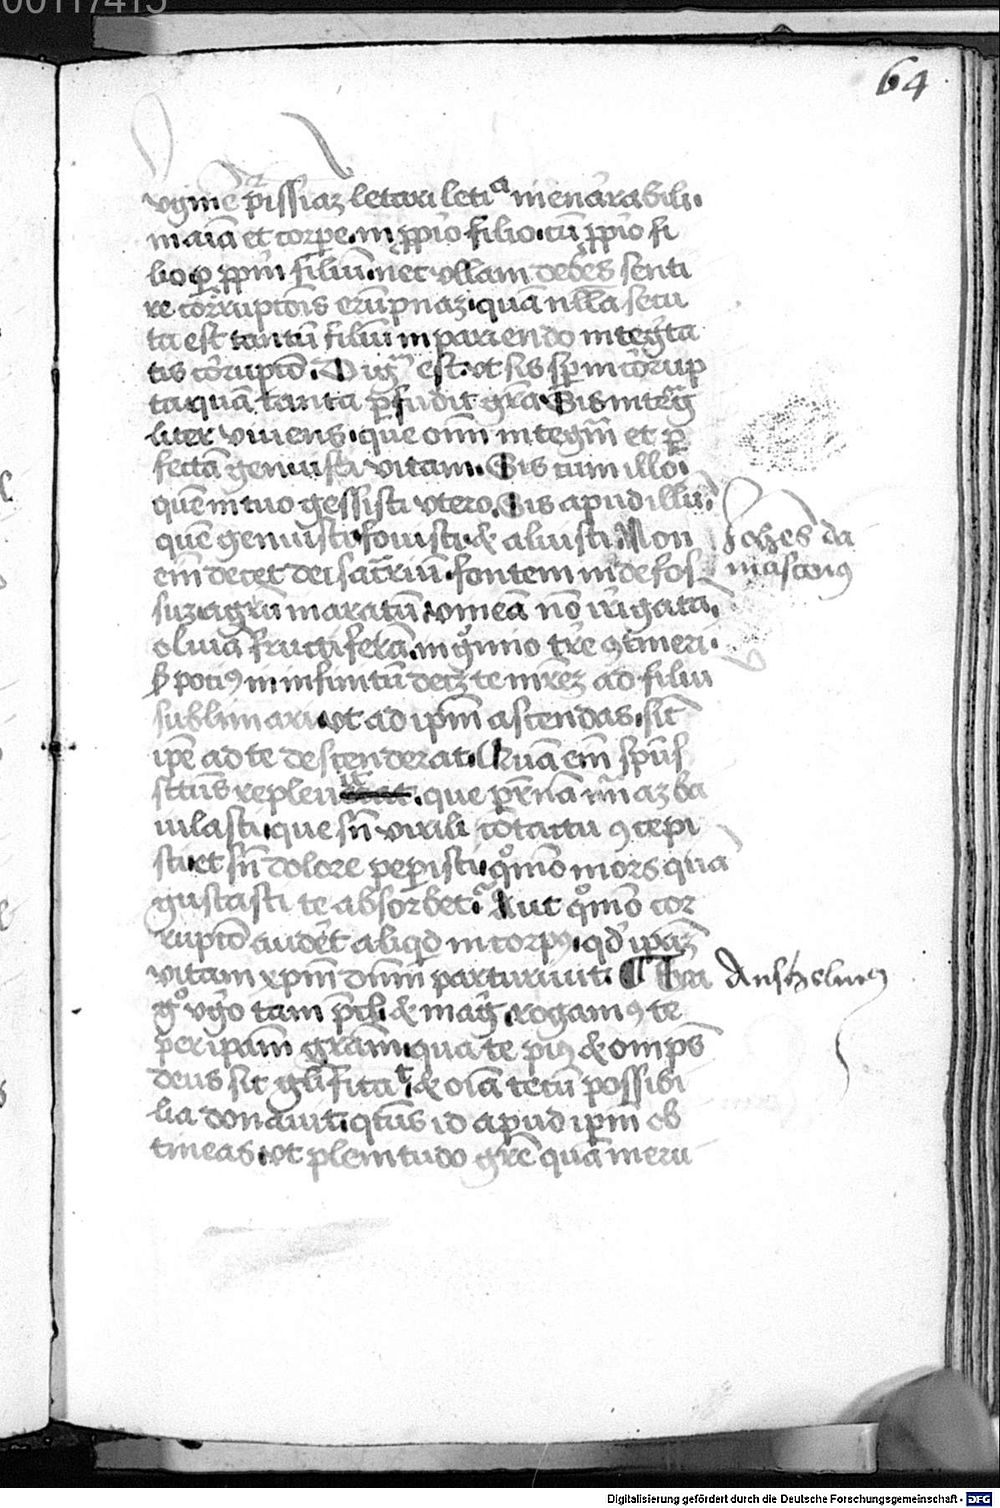 00117415
64
vgine pissiaz letari letica inenarabili.
in aia et corpe. in ppio filio. cu ppio fi
lio. p ppm filiu. nec vllam debes senti
re corruptois erupnaz. qua nlla secu
ta est tantu filiu in pariendo integta
tis coruptō. Dig est. vt sis sp incorup
ta qua tanta pfudit gra. Sis integ
liter viuens. que oim integm et p
fecta genuisti vitam. Sis cum illo.
quē in tuo gessisti vtero. Sis apud illū.
quē genuisti. fouisti. & aluisti. Non
Johes da
mascenus
em decet dei sacriu. fontem in defos
suz. agru inaratu. vineā nō irigatā.
oliuā fructiferā. in gmio tre 9tineri.
potius in infinitū decz te inrez ad filiu
sublimari. vt ad ipm ascendas. sic
ipe ad te descenderat. Quā em spus
sctus repleuit. que pnā inaz ba
iulasti. que sn virili cōtactu 9cepi
sti. et sn dolore peperisti. qomo mors quā
gustasti te absorbet. Aut qomo cor
ruptō audet aliqd in corpus. qd ipaz
vitam xpm dnm parturiuit.
Anshelmus
go vgo tam & mag. rogamus te
per ipam gram. qua te pius & omps
deus sic glificat. & oia tecu possibi
lia donauit. qtus id apud ipm ob
tineas. vt plenitudo gre quā meru
Digitalisierung gefördert durch die Deutsche Forschungsgemeinschaft - DFG